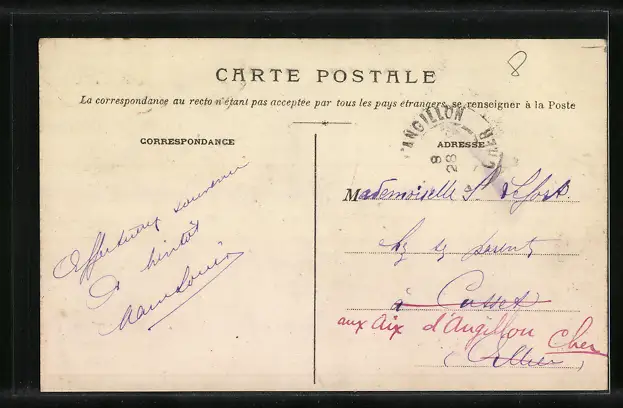 8
CARTE POSTALE
La correspondance au recto n'étant pas acceptée par tous les pays étrangers, se renseigner à la Poste
CORRESPONDANCE
ADRESSE
D'ANGILLON CHER
8
28
Affectueux souvenir
à bientôt
Mademoiselle
chez ses parents
à Cusset
aux Aix d'Angillon Cher
(Allier)